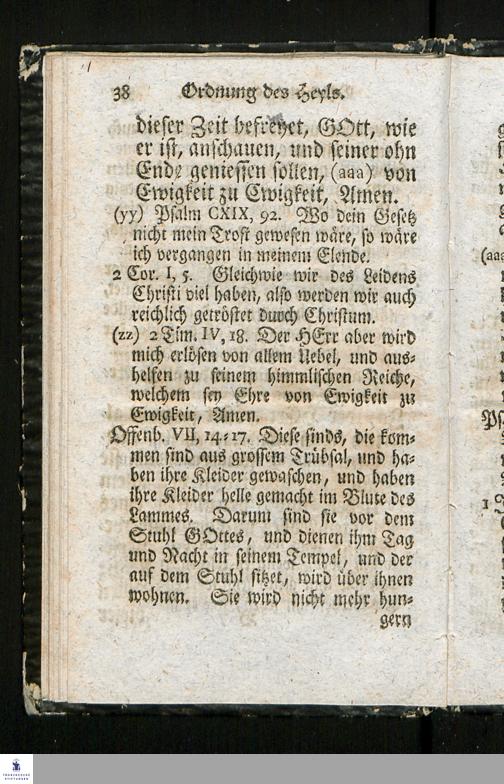 38 Ordnung des Heyls.
dieser Zeit befreyet, GOtt, wie
er ist, anschauen, und seiner ohn
Ende geniessen sollen, (aaa) von
Ewigkeit zu Ewigkeit, Amen.
(yy) Psalm CXIX, 92. Wo dein Gesetz
nicht mein Trost gewesen wäre, so wäre
ich vergangen in meinem Elende.
2 Cor. I, 5. Gleichwie wir des Leidens
Christi viel haben, also werden wir auch
reichlich getröstet durch Christum.
(zz) 2 Tim. IV, 18. Der HErr aber wird
mich erlösen von allem Uebel, und aus-
helfen zu seinem himmlischen Reiche,
welchem sey Ehre von Ewigkeit zu
Ewigkeit, Amen.
Offenb. VII, 14-17. Diese sinds, die kom-
men sind aus grossem Trübsal, und ha-
ben ihre Kleider gewaschen, und haben
ihre Kleider helle gemacht im Blute des
Lammes. Darum sind sie vor dem
Stuhl GOttes, und dienen ihm Tag
und Nacht in seinem Tempel, und der
auf dem Stuhl sitzet, wird über ihnen
wohnen. Sie wird nicht mehr hun-
gern
(aaa
Ps
1
FRANCKESCHE
STIFTUNGEN